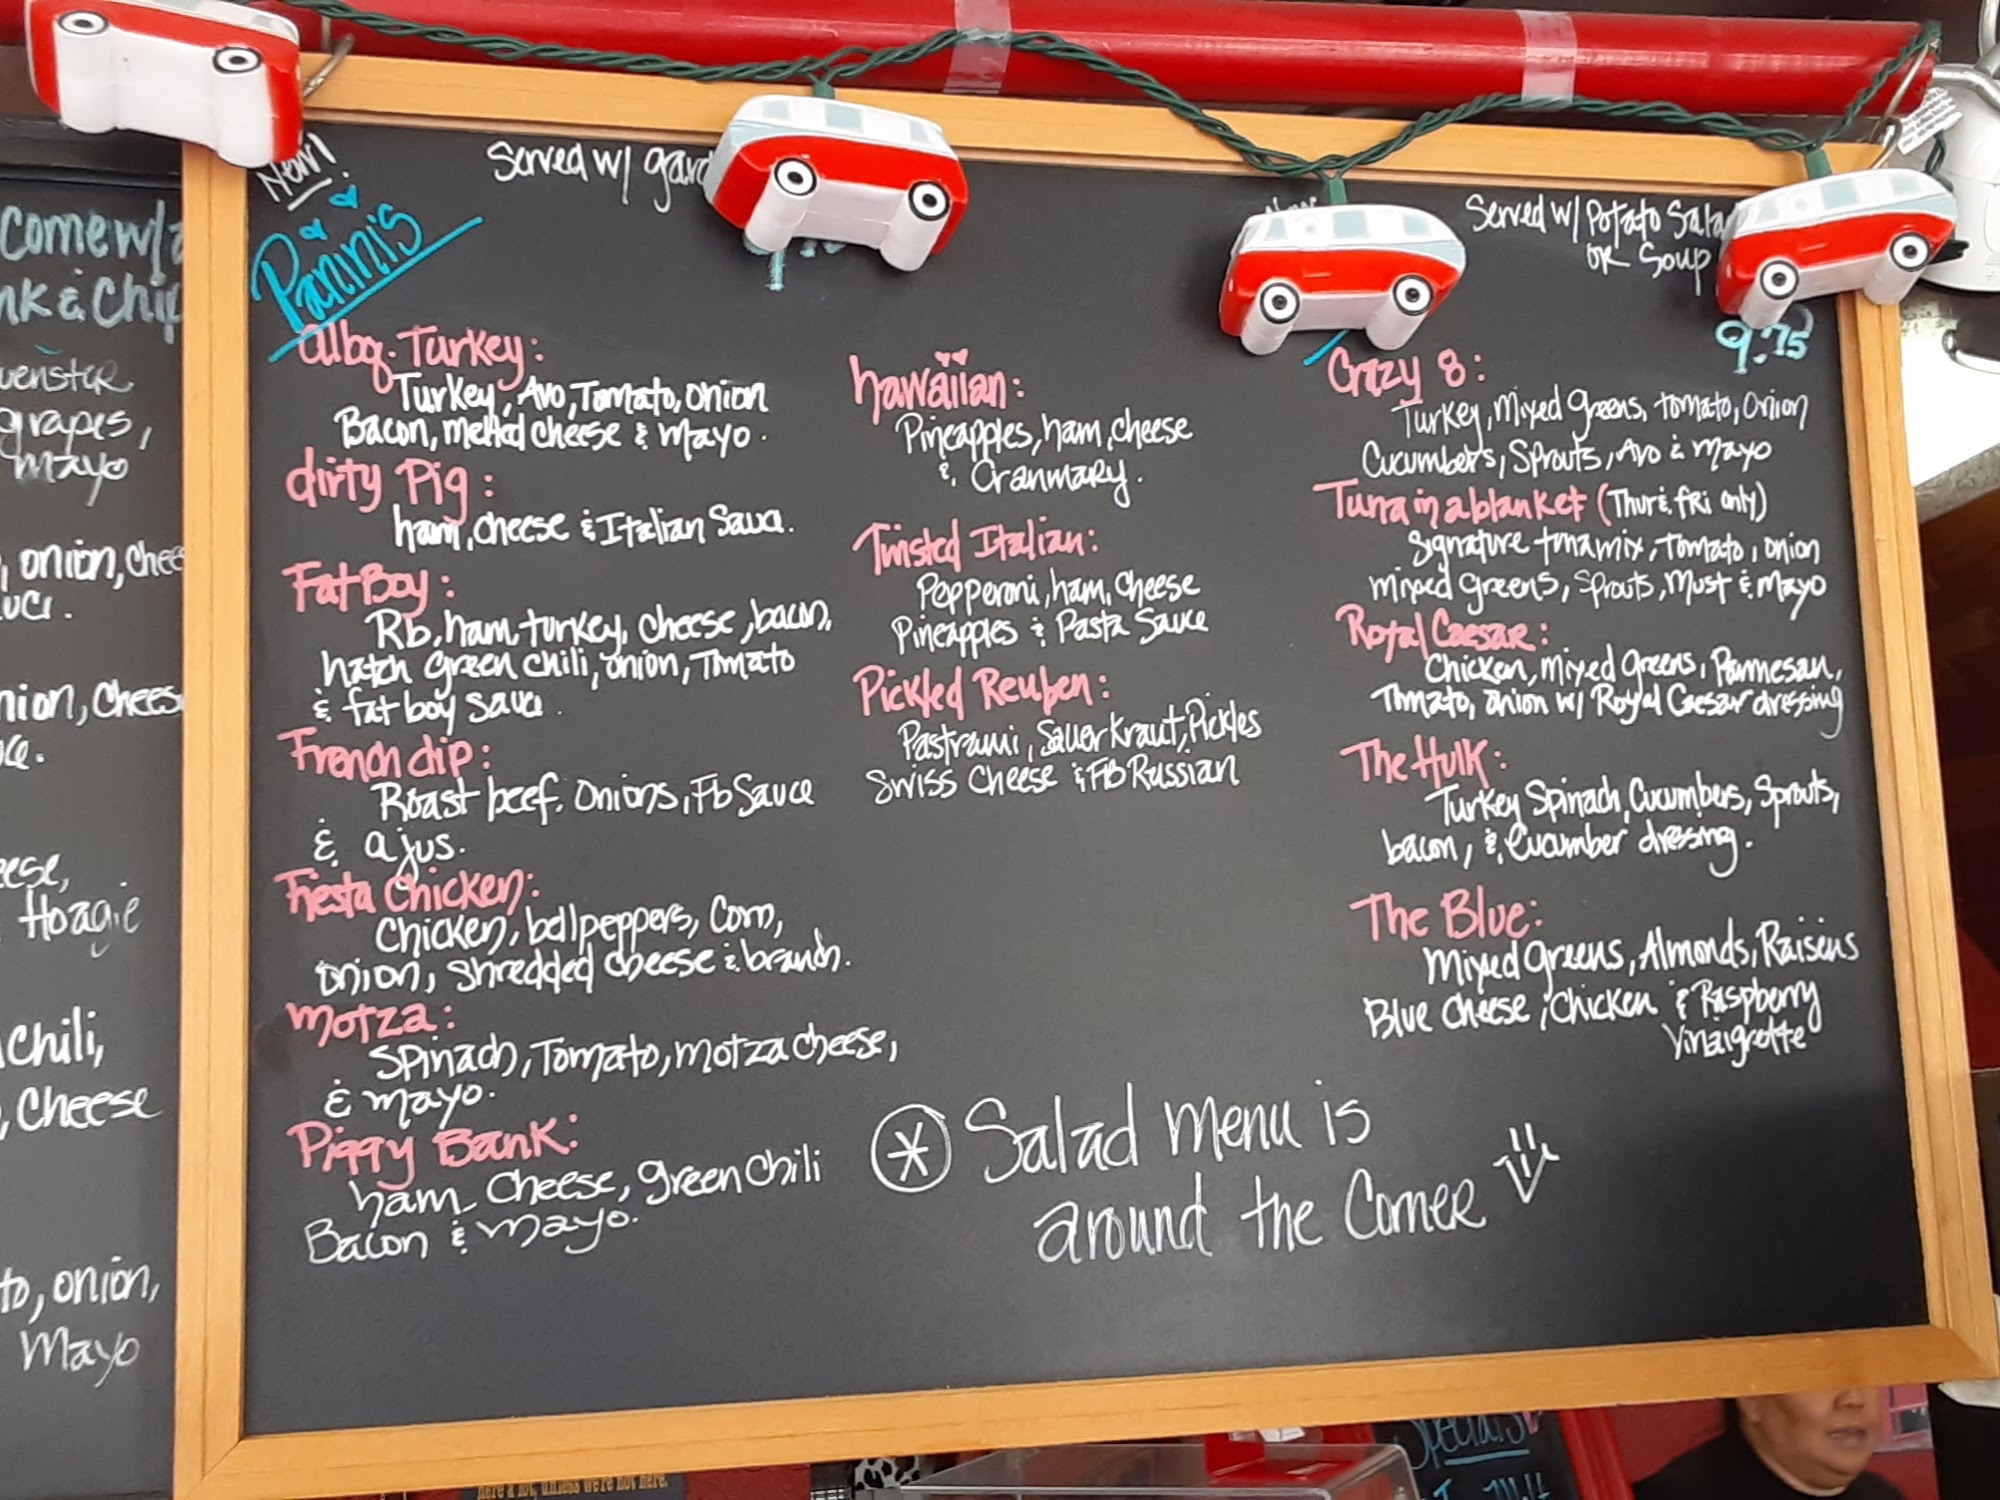 come w/
nk & Chip
grapes,
mayo
, onion, chee
nion, chees
eese,
Hoagie
Chili,
, Cheese
to, onion,
Mayo
New!
Paninis
Served w/ gard
Albq. Turkey:
Turkey, Avo, Tomato, onion
Bacon, melted cheese & mayo.
dirty Pig:
ham, cheese & Italian Sauce.
Fat Boy:
Rb, ham, turkey, cheese, bacon,
hatch green chili, onion, Tomato
& fat boy sauce.
French dip:
Roast beef. Onions, Fb Sauce
& ajus.
Fiesta Chicken:
Chicken, bell peppers, Corn,
onion, shredded cheese & branch.
Motza:
Spinach, Tomato, motza cheese,
& mayo.
Piggy Bank:
ham Cheese, green Chili
Bacon & mayo.
hawaiian:
Pineapples, ham, cheese
& Cranmary.
Twisted Italian:
Pepperoni, ham, Cheese
Pineapples & Pasta Sauce
Pickled Reuben:
Pastrami, Sauerkraut, Pickles
Swiss Cheese & Fb Russian
New
Served w/ Potato Sala
or Soup
9.75
Crazy 8:
Turkey, mixed greens, tomato, onion
Cucumbers, Sprouts, Avo & mayo
Tuna in a blanket (Thur & fri only)
Signature tuna mix, Tomato, onion
mixed greens, Sprouts, Must & mayo
Royal Caesar:
Chicken, mixed greens, Parmesan,
Tomato, onion w/ Royal Caesar dressing
The Hulk:
Turkey Spinach, Cucumbers, Sprouts,
bacon, & Cucumber dressing.
The Blue:
Mixed Greens, Almonds, Raisens
Blue Cheese, Chicken & Raspberry
Vinaigrette
* Salad menu is
around the Corner
Specials
here a lot, unless we're not here.